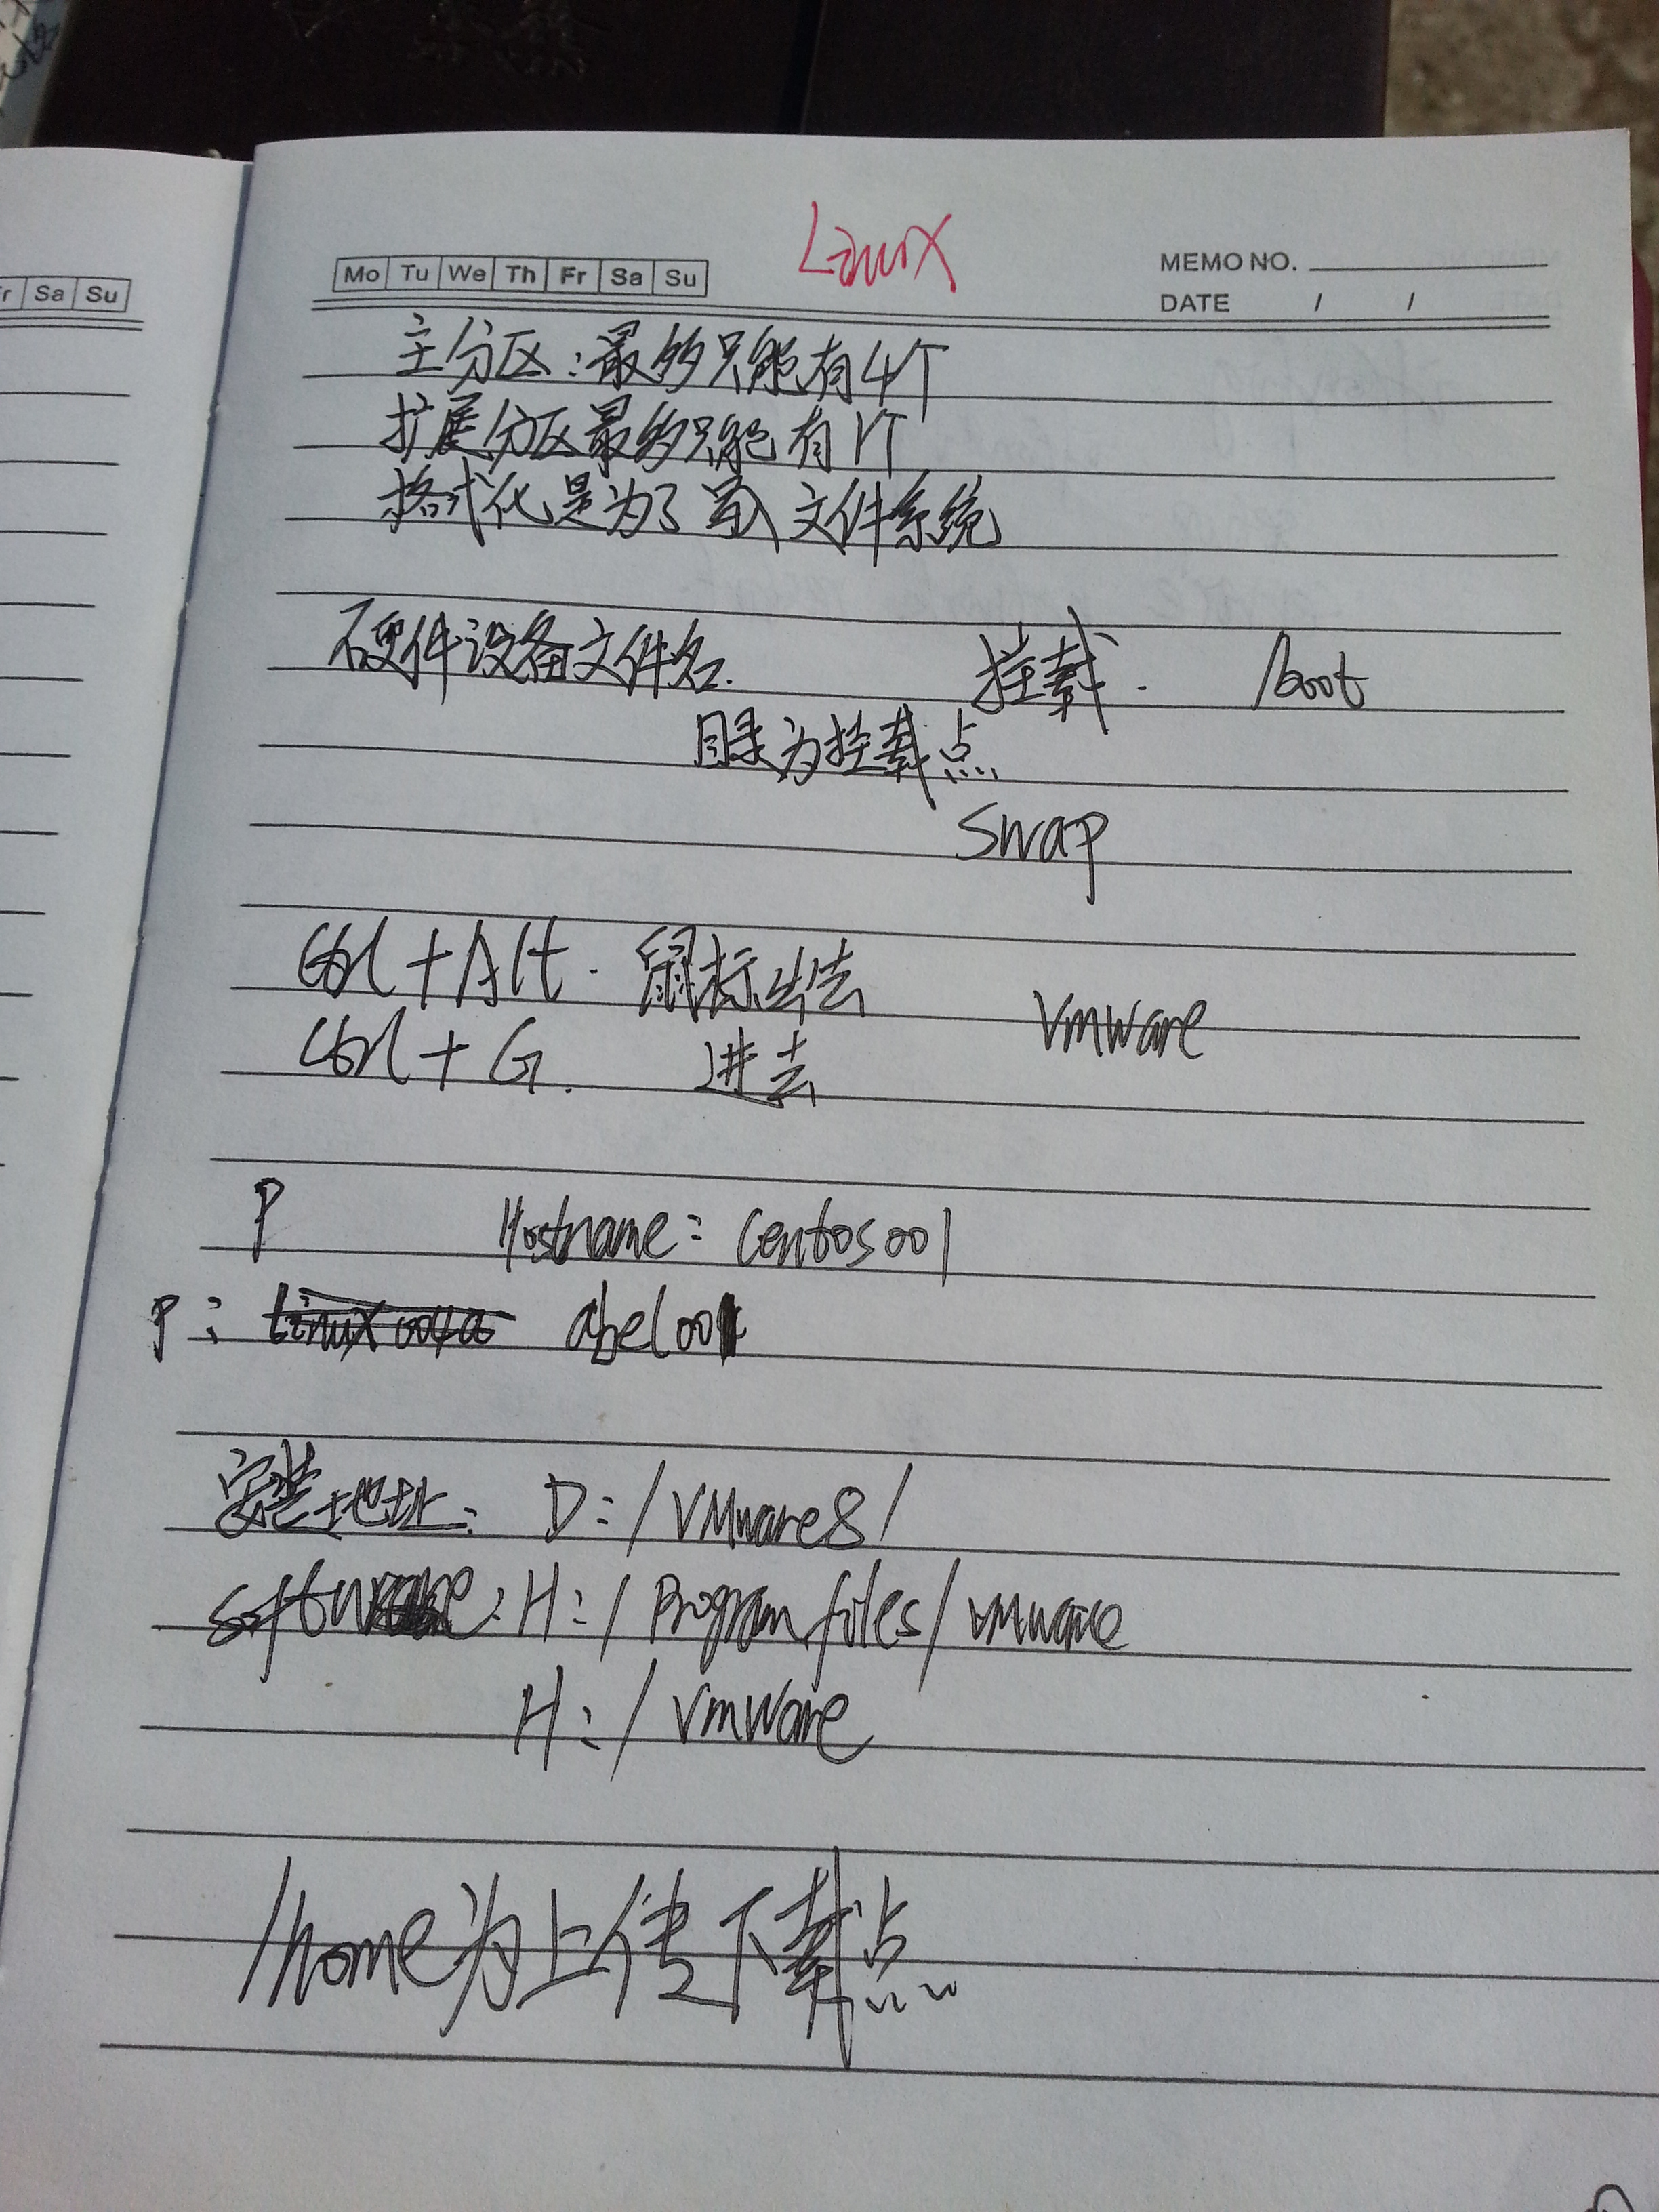 Linux
Mo Tu We Th Fr Sa Su
MEMO NO.
DATE / /
r Sa Su
主分区:最多只能有4个
扩展分区最多只能有1个
格式化是为了写入文件系统
硬件设备文件名. 挂载. /boot
目录为挂载点
Swap
Ctrl+Alt. 鼠标出去
Vmware
Ctrl+G. 进去
P Hostname: centos001
P: abel001
安装地址: D:/VMware8/
software: H:/Program files/VMware
H:/VmWare
/home为上传下载点